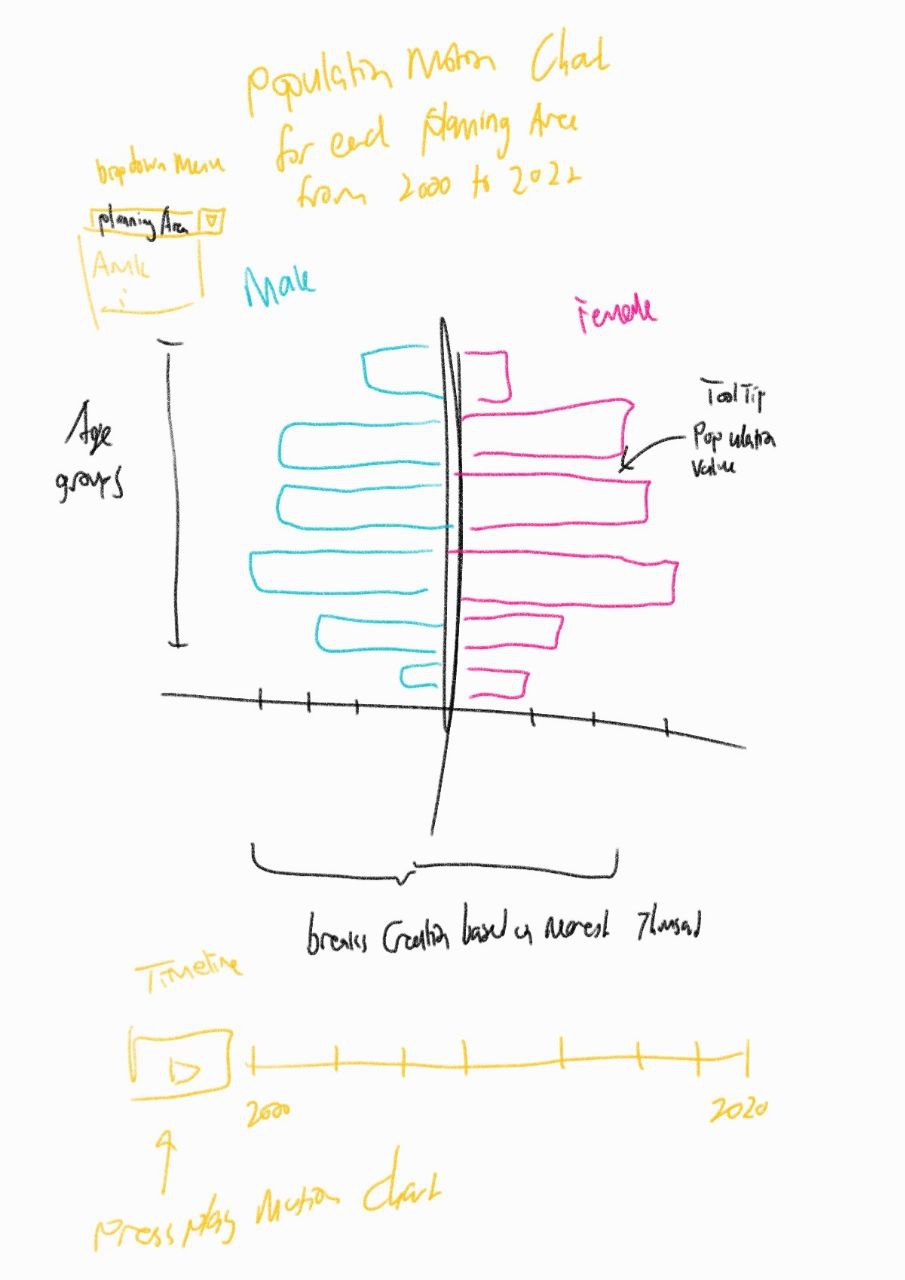 Population Motion Chart
for each planning Area
from 2000 to 2022
Dropdown Menu
planning Area
Amk
Male
Female
Age
groups
ToolTip
Population
value
breaks Creation based on nearest Thousand
Timeline
2000
2020
Press play Motion Chart